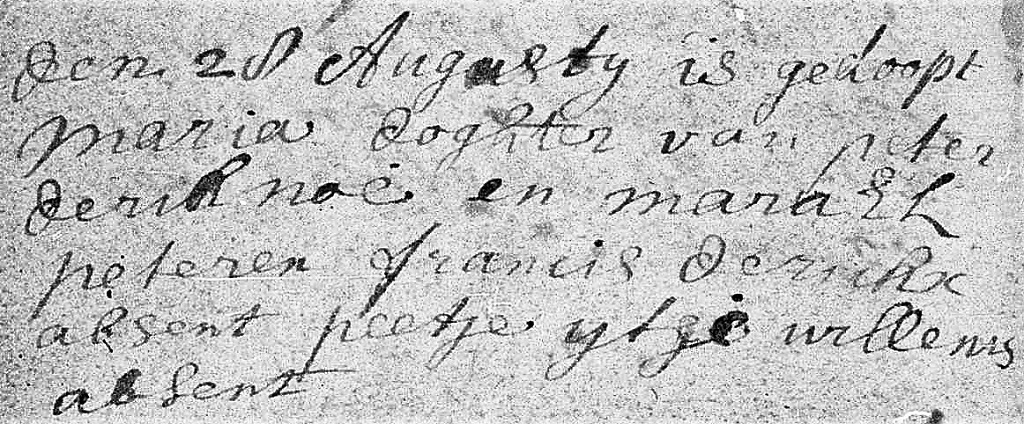 den 28 Augusty is gedoopt
maria doghter van peter
derik noë en maria El
peteren francis derickx
absent peetje ytge willems
absent